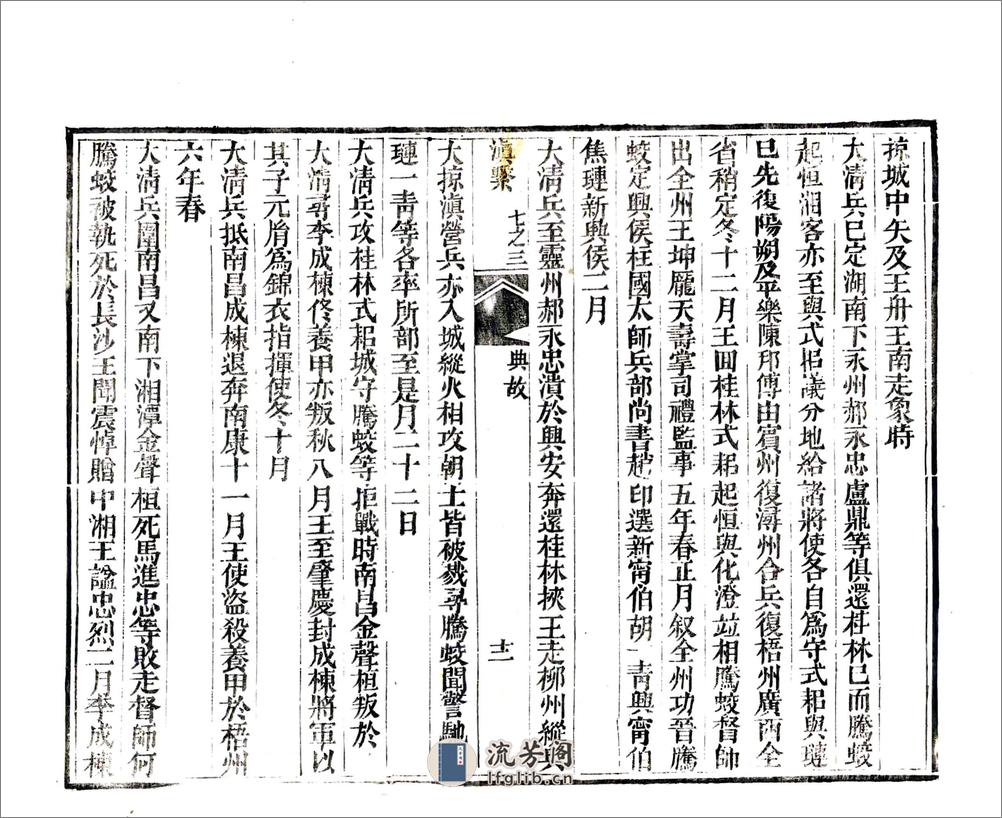 掠城中矢及王舟王南走象時
大清兵已定湖南下永州郝永忠盧鼎等俱還桂林已而騰蛟
起恒湘客亦至與式耜議分地給諸將使各自爲守式耜與璉
已先復陽朔及平樂陳邦傅由賓州復潯州合兵復梧州廣西全
省稍定冬十二月王囬桂林式耜起恒與化澄竝相騰蛟督師
出全州王坤龎天壽掌司禮監事五年春正月叙全州功晉騰
蛟定興侯柱國太師兵部尚書起印選新甯伯胡一靑興甯伯
焦璉新興侯二月
大清兵至靈州郝永忠潰於興安奔還桂林挾王走柳州縱兵
滇繫 七之三 典故 十二
大掠滇營兵亦入城縱火相攻朝士皆被戮尋騰蛟聞警馳
璉一靑等各率所部至是月二十二日
大淸兵攻桂林式耜城守騰蛟等拒戰時南昌金聲桓叛於
大淸尋李成棟佟養甲亦叛秋八月王至肇慶封成棟將軍以
其子元胤爲錦衣指揮使冬十月
大淸兵抵南昌成棟退奔南康十一月王使盜殺養甲於梧州
六年春
大淸兵圍南昌又南下湘潭金聲桓死馬進忠等敗走督師何
騰蛟被執死於長沙王聞震悼贈中湘王諡忠烈二月李成棟
流芳阁
lfglib.cn